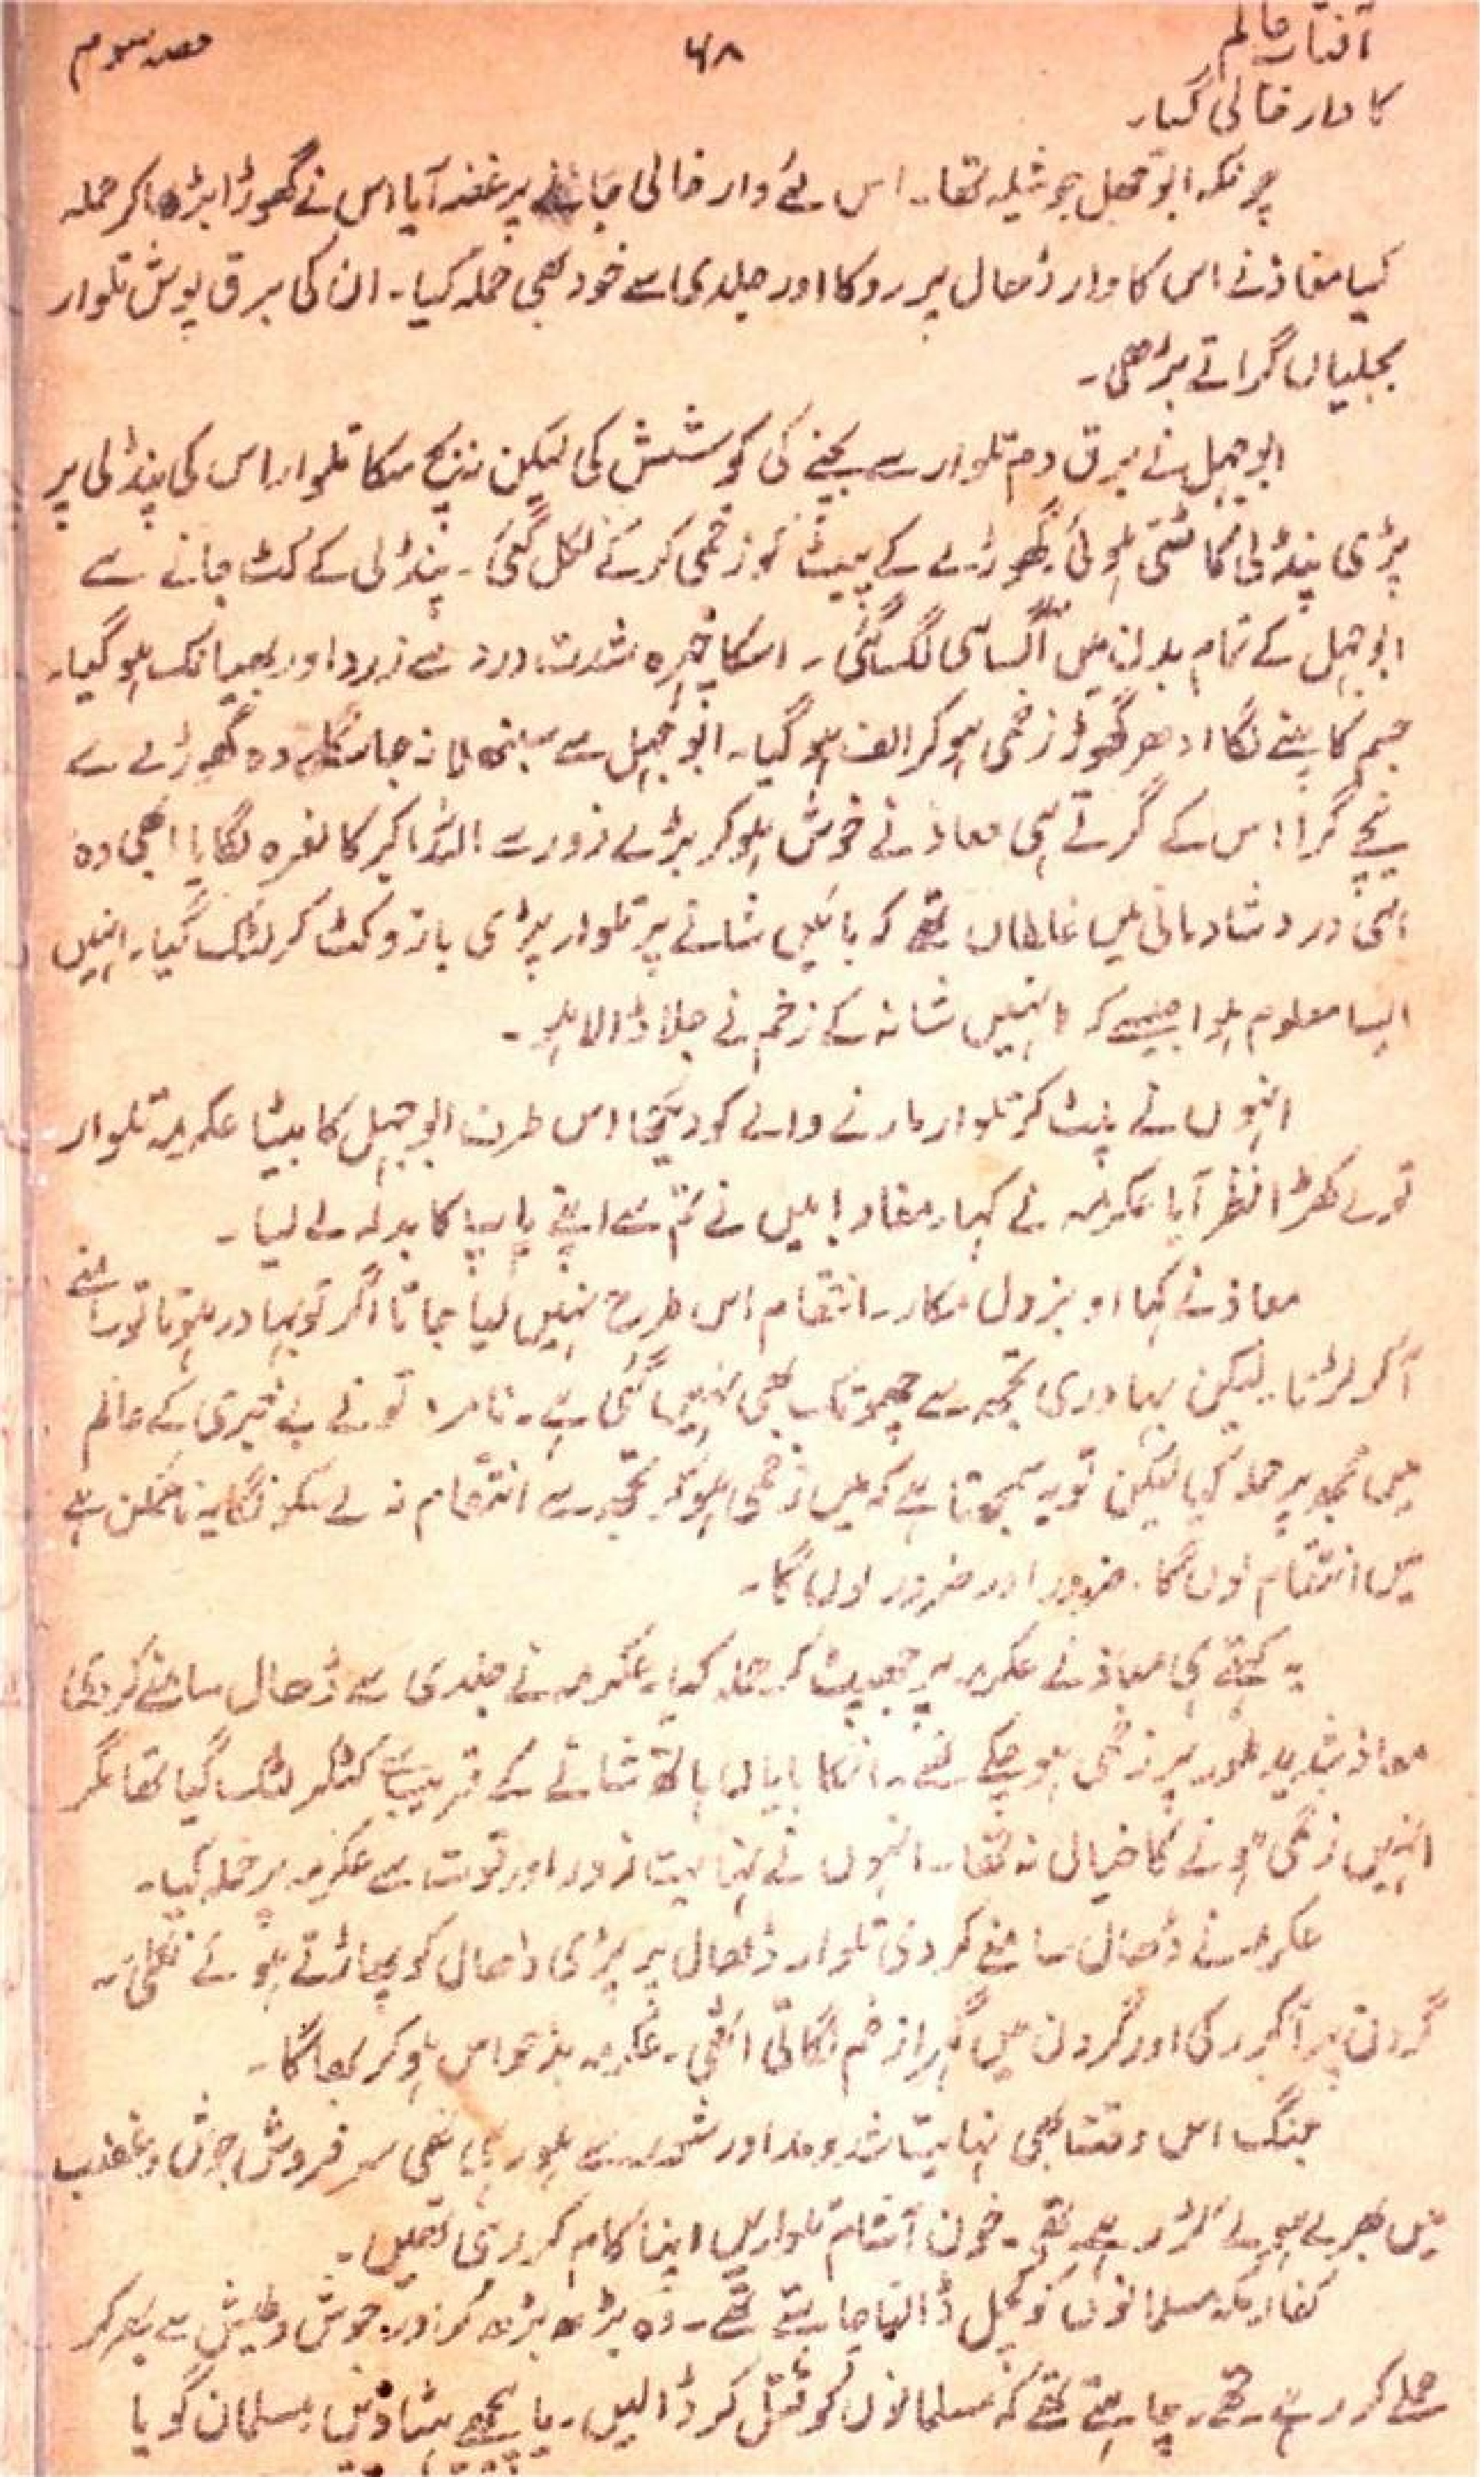 آفتاب عالم ۶۸ حصہ سوم
کا وار خالی گیا۔
چونکہ ابوجہل جوشیلہ تھا۔ اس لئے وار خالی جانے پر غصہ آیا اس نے گھوڑا بڑھا کر حملہ
کیا معاذ نے اس کا وار ڈھال پر روکا اور جلدی سے خود بھی حملہ کیا۔ ان کی برق پوش تلوار
بجلیاں گراتے بڑھی۔
ابوجہل نے برق دم تلوار سے بچنے کی کوشش کی لیکن نہ بچ سکا تلوار اس کی پنڈلی پر
پڑی پنڈلی کاٹتی ہوئی گھوڑے کے پیٹ کو زخمی کر کے نکل گئی۔ پنڈلی کے کٹ جانے سے
ابوجہل کے تمام بدن میں آگ سی لگ گئی۔ اسکا چہرہ شدت درد سے زرد اور بھیانک ہو گیا۔
جسم کانپنے لگا ادھر گھوڑا زخمی ہو کر الف ہو گیا۔ ابوجہل سے سنبھلا نہ جا سکا۔ وہ گھوڑے سے
نیچے گرا اس کے گرتے ہی معاذ نے خوش ہو کر بڑے زور سے اللہ اکبر کا نعرہ لگایا ابھی وہ
اسی در د شادمانی میں غلطاں تھے کہ بائیں شانے پر تلوار پڑی بازو کٹ کر لٹک گیا۔ انہیں
ایسا معلوم ہوا جیسے کہ انہیں شانہ کے زخم نے جلا ڈالا ہو۔
انہوں نے پلٹ کر تلوار مارنے والے کو دیکھا اس طرف ابوجہل کا بیٹا عکرمہ تلوار
تولے کھڑا نظر آیا عکرمہ نے کہا۔ معاذ! میں نے تم سے اپنے باپ کا بدلہ لے لیا۔
معاذ نے کہا او بزدل مکار۔ انتقام اس طرح نہیں لیا جاتا اگر تو بہادر ہوتا تو سامنے
آکر لڑتا۔ لیکن بہادری تجھ سے چھو تک بھی نہیں گئی ہے۔ نامرد تو نے بے خبری کے عالم
میں مجھ پر حملہ کیا لیکن تو یہ سمجھتا ہے کہ میں زخمی ہو کر تجھ سے انتقام نہ لے سکونگا یہ ناممکن ہے
میں انتقام لوں گا۔ ضرور اور ضرور لوں گا۔
یہ کہتے ہی معاذ نے عکرمہ پر جھپٹ کر حملہ کیا۔ عکرمہ نے جلدی سے ڈھال سامنے کر دی
معاذ شدید طور پر زخمی ہو چکے تھے۔ انکا بایاں ہاتھ شانے کے قریب سے کٹکر لٹک گیا تھا مگر
انہیں زخمی ہونے کا خیال نہ تھا۔ انہوں نے نہایت زور اور قوت سے عکرمہ پر حملہ کیا۔
عکرمہ نے ڈھال سامنے کر دی تلوار ڈھال پر پڑی ڈھال کو پھاڑتے ہوئے نکلی۔
گردن پر آکر رکی اور گردن میں گہرا زخم لگاتی اٹھی۔ عکرمہ بدحواس ہو کر بھاگا۔
جنگ اس وقت بھی نہایت شد و مد اور شدت سے ہو رہی تھی سر فروش جوش و غضب
میں بھرے ہوئے لڑ رہے تھے۔ خون آشام تلواریں اپنا کام کر رہی تھیں۔
کفار مکہ مسلمانوں کو کچل ڈالنا چاہتے تھے۔ وہ بڑھ بڑھ کر اور جوش و طیش سے بھر کر
حملے کر رہے تھے۔ چاہتے تھے کہ مسلمانوں کو قتل کر ڈالیں۔ یا پیچھے ہٹا دیں۔ مسلمان گویا